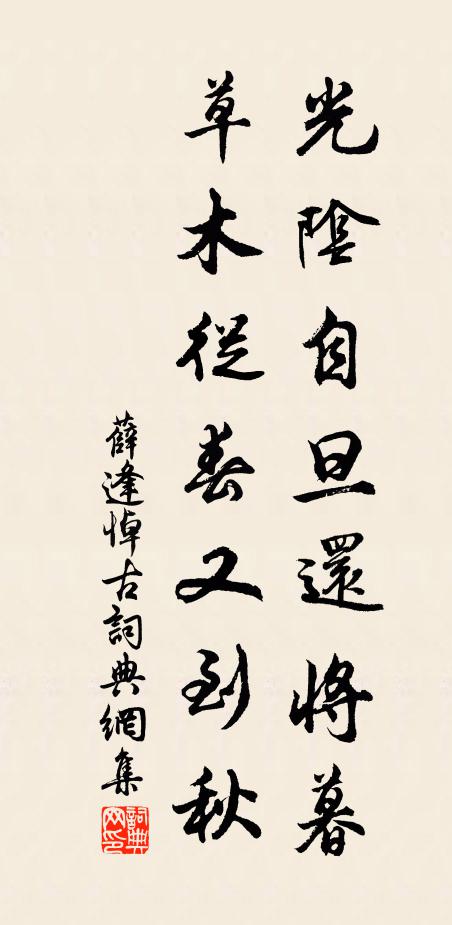 光陰自旦還將暮
草木從春又到秋
薛逢悼古詞典網集
詞典网印